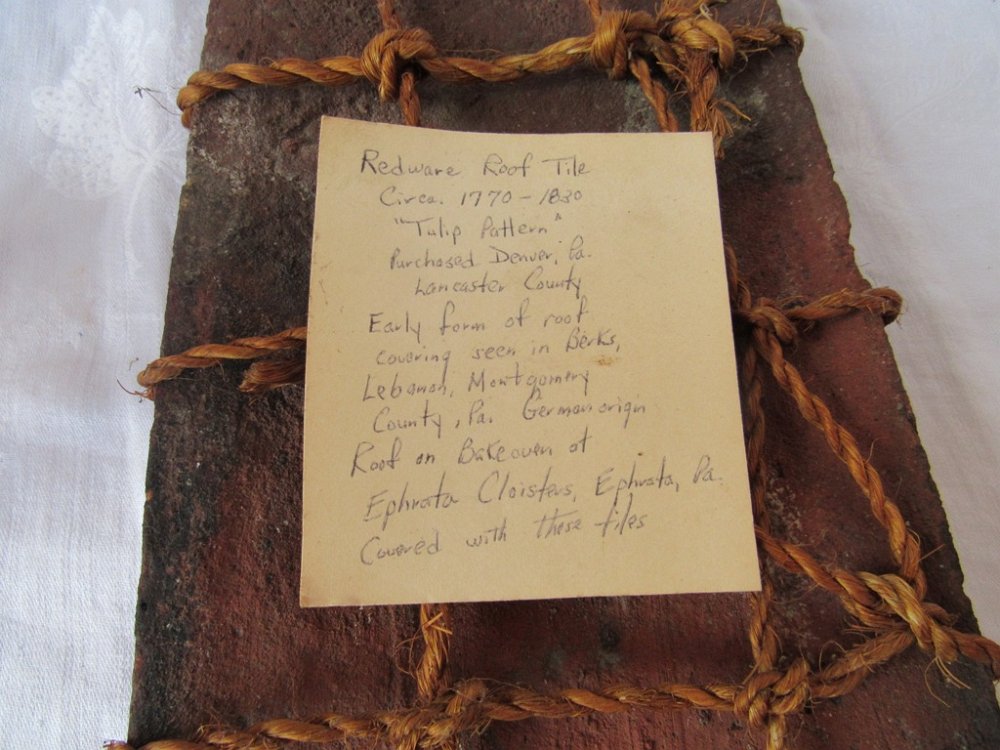 Redware Roof Tile
Circa. 1770-1830
"Tulip Pattern"
Purchased Denver, Pa.
Lancaster County
Early form of roof
covering seen in Berks,
Lebanon, Montgomery
County, Pa. German origin
Roof on Bakeoven at
Ephrata Cloisters, Ephrata, Pa.
Covered with these tiles